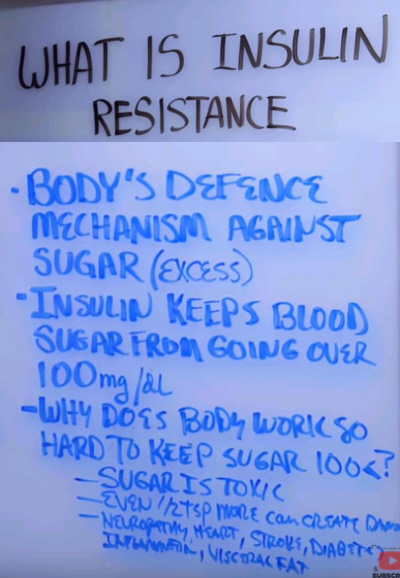 WHAT IS INSULIN
RESISTANCE
• BODY'S DEFENCE
MECHANISM AGAINST
SUGAR (EXCESS)
• INSULIN KEEPS BLOOD
SUGAR FROM GOING OVER
100mg/dL
- WHY DOES BODY WORK SO
HARD TO KEEP SUGAR 100<?
- SUGAR IS TOXIC
- EVEN 1/2 TSP MORE CAN CREATE
- NEUROPATHY, HEART, STROKE,
INFLAMMATION, VISCERAL FAT
&
SUBSCR